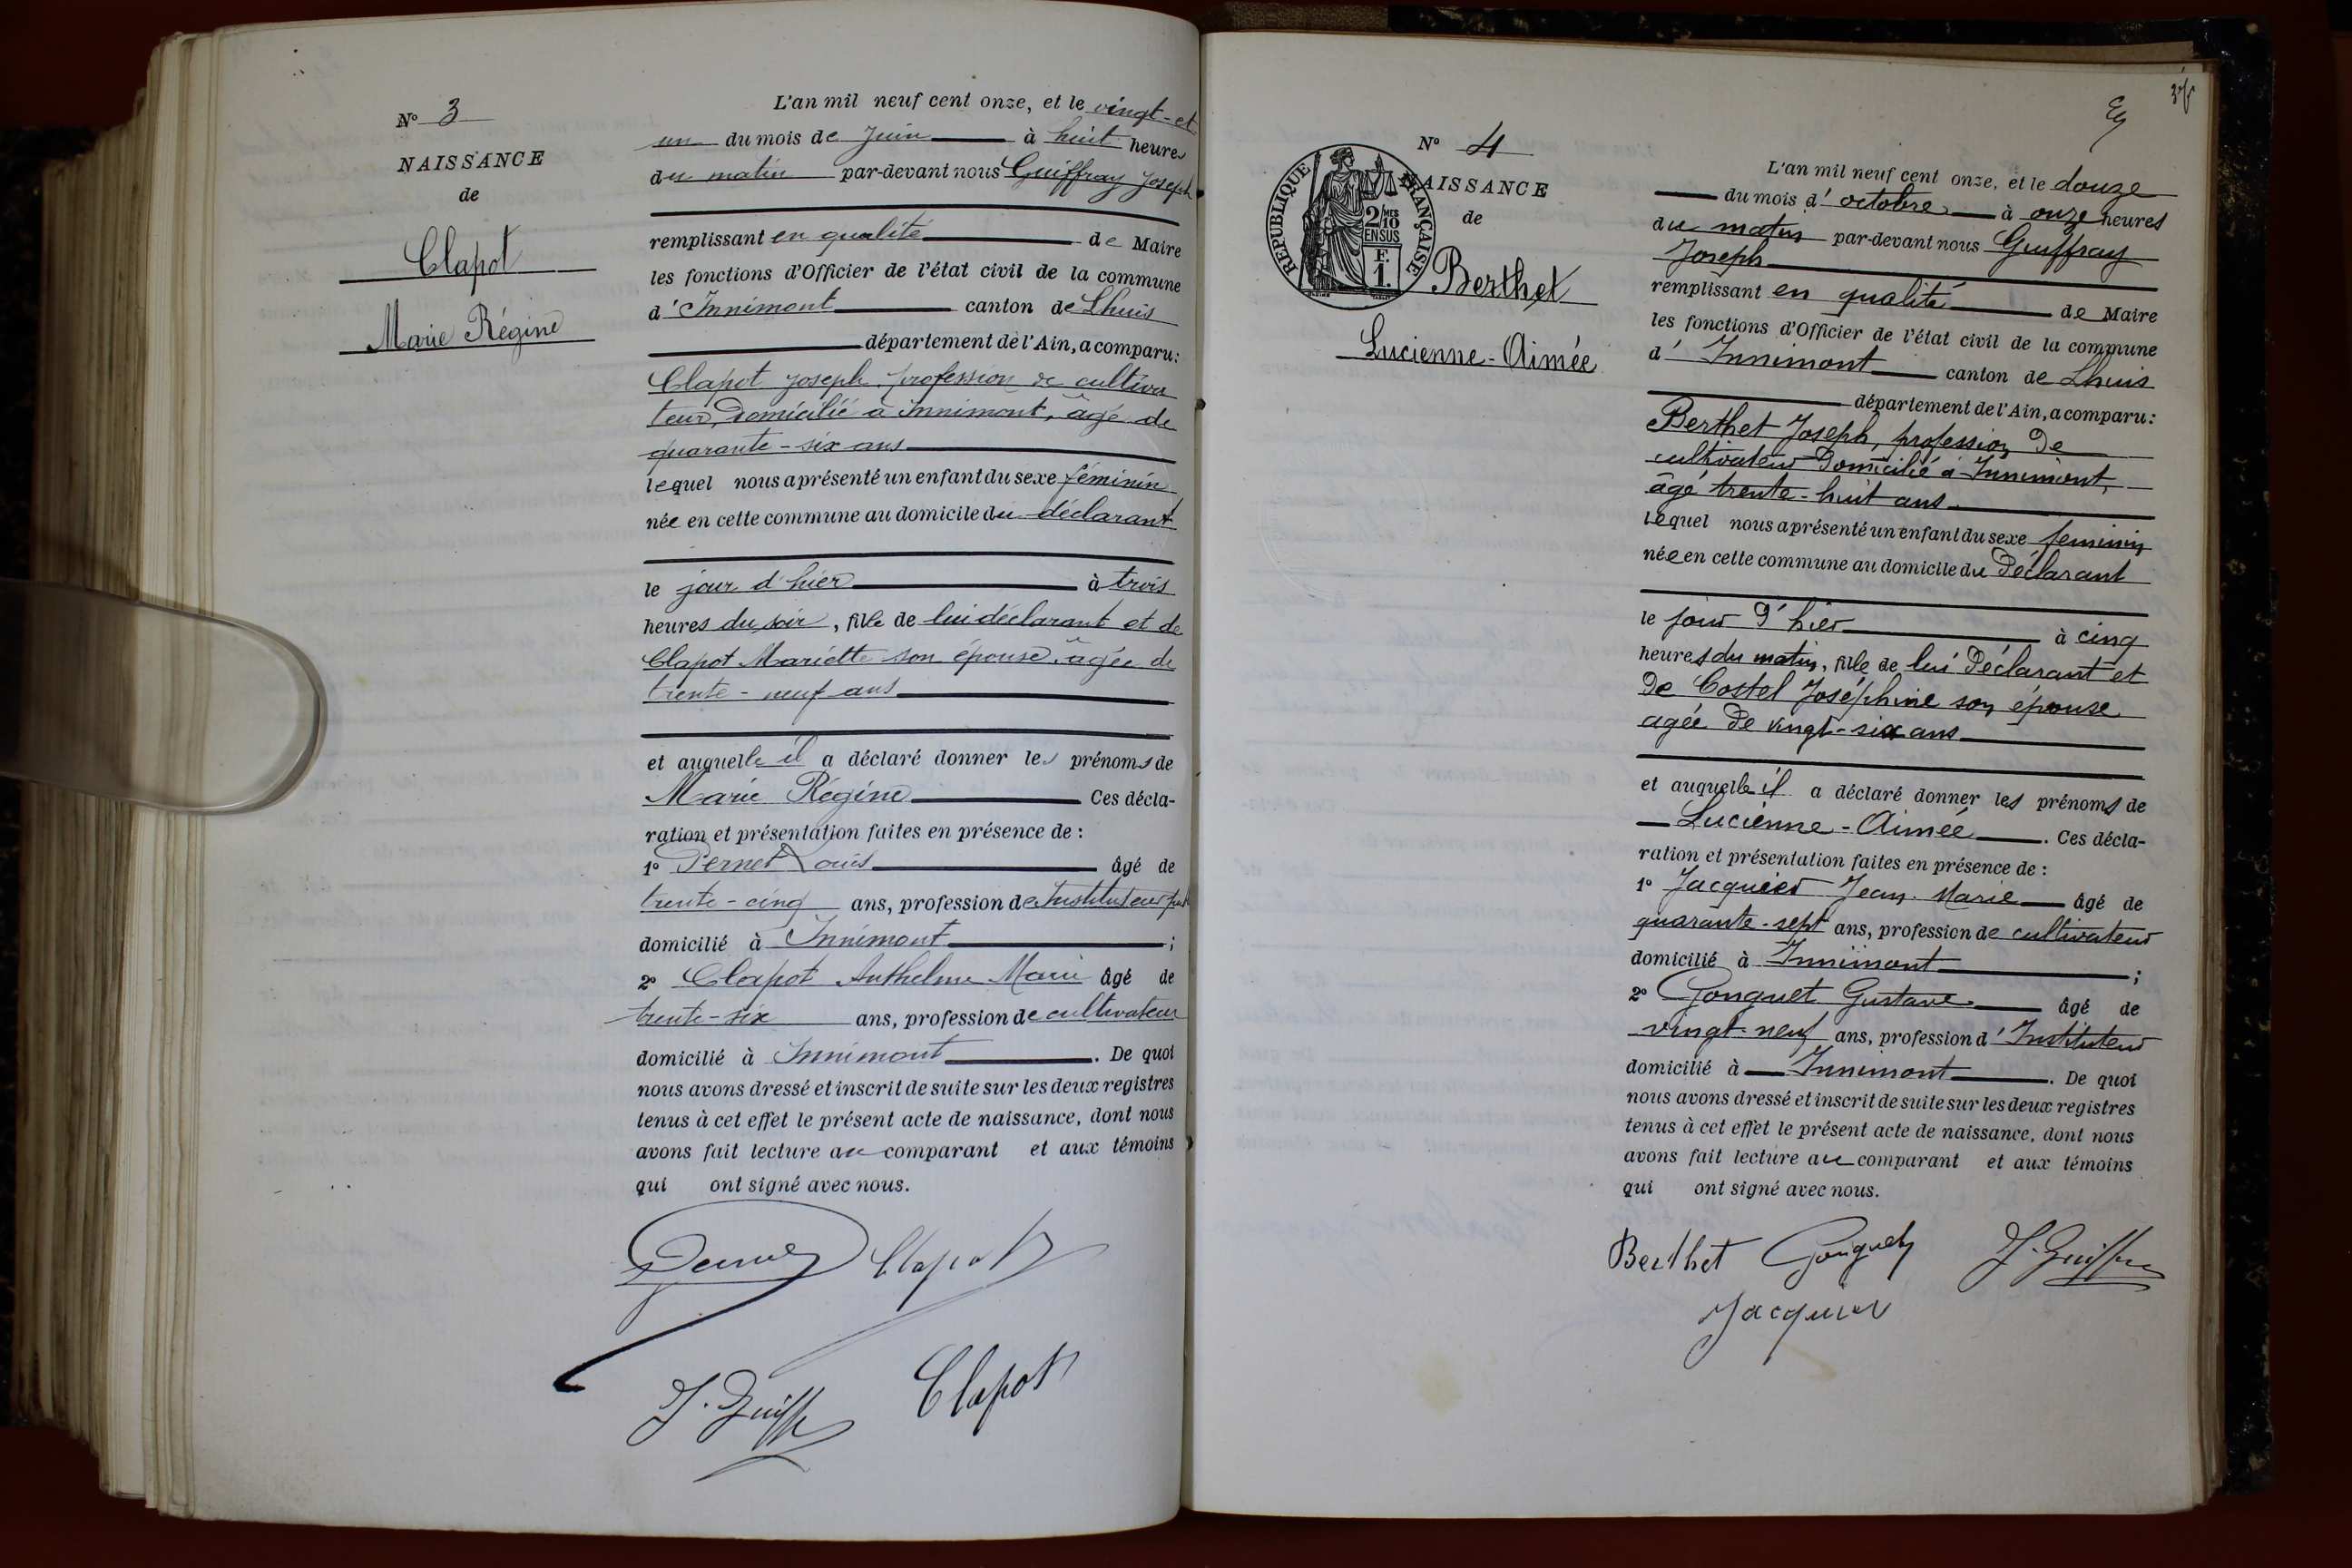 N° 3
NAISSANCE
de
Clapot
Marie Régine
L'an mil neuf cent onze, et le vingt-et
un du mois de Juin à huit heures
du matin par-devant nous Guiffray Joseph
remplissant en qualité de Maire
les fonctions d'Officier de l'état civil de la commune
d'Innimont canton de Lhuis
département de l'Ain, a comparu:
Clapot Joseph profession de cultiva
teur, domicilié à Innimont, âgé de
quarante-six ans
lequel nous a présenté un enfant du sexe féminin
née en cette commune au domicile du déclarant
le jour d'hier à trois
heures du soir, fille de lui déclarant et de
Clapot Mariette son épouse, âgée de
trente-neuf ans
et auquelle il a déclaré donner les prénoms de
Marie Régine Ces décla-
ration et présentation faites en présence de :
1° Pernet Louis âgé de
trente-cinq ans, profession de Instituteur
domicilié à Innimont ;
2° Clapot Anthelme Marie âgé de
trente-six ans, profession de cultivateur
domicilié à Innimont. De quoi
nous avons dressé et inscrit de suite sur les deux registres
tenus à cet effet le présent acte de naissance, dont nous
avons fait lecture au comparant et aux témoins
qui ont signé avec nous.
Pernet Clapot
J. Guiff Clapot
N° 4
NAISSANCE
de
RÉPUBLIQUE FRANÇAISE
2/10 EN SUS
F. 1.
Berthet
Lucienne-Aimée
L'an mil neuf cent onze, et le douze
du mois d'octobre à onze heures
du matin par-devant nous Guiffray
Joseph
remplissant en qualité de Maire
les fonctions d'Officier de l'état civil de la commune
d'Innimont canton de Lhuis
département de l'Ain, a comparu:
Berthet Joseph, profession de
cultivateur domicilié à Innimont,
âgé trente-huit ans
lequel nous a présenté un enfant du sexe feminin
née en cette commune au domicile du déclarant
le jour d'hier à cinq
heures du matin, fille de lui déclarant et
de Costel Joséphine son épouse
agée de vingt-six ans
et auquelle il a déclaré donner les prénoms de
Lucienne-Aimée. Ces décla-
ration et présentation faites en présence de :
1° Jacquier Jean-Marie âgé de
quarante-sept ans, profession de cultivateur
domicilié à Innimont ;
2° Gonguet Gustave âgé de
vingt-neuf ans, profession d'Instituteur
domicilié à Innimont. De quoi
nous avons dressé et inscrit de suite sur les deux registres
tenus à cet effet le présent acte de naissance, dont nous
avons fait lecture au comparant et aux témoins
qui ont signé avec nous.
Berthet Gonguet J. Guiffray
Jacquier